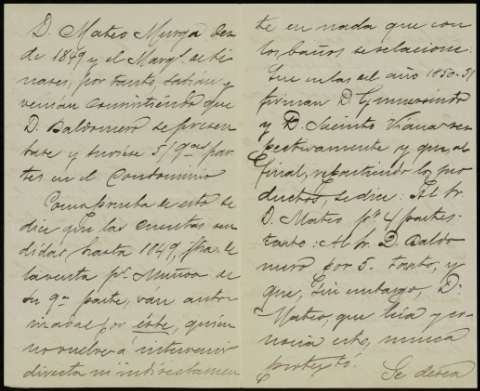 D. Mateo Murga des
de 1849 y el Marqs. se ti
nases, por tanto, sabían y
venían consintiendo que
D. Baldomero se presen
tase y tuviese 5/9as par
tes en el Condominio
Como prueba de esto se
dice que las cuentas ren
didas, hasta 1849, fha. de
la venta pr. Muñoz de
su 9a parte, ván autor
izadas por éste, quien
no vuelve á intervenir
directa ni indirectamen
te en nada que con
los baños se relacione.
Que en las del año 1850-51
firman D. Gumersindo
y D. Jacinto Viana res
pectivamente y que, al
final, repartiendo los pro
ductos, se dice: Al Sr.
D. Mateo pr. 4 partes:
tanto: Al Sr. D. Baldo
mero por 5. tanto, y
que, sin embargo, D.
Mateo, que leía y co
nocía esto, nunca
protestó.
Se desea